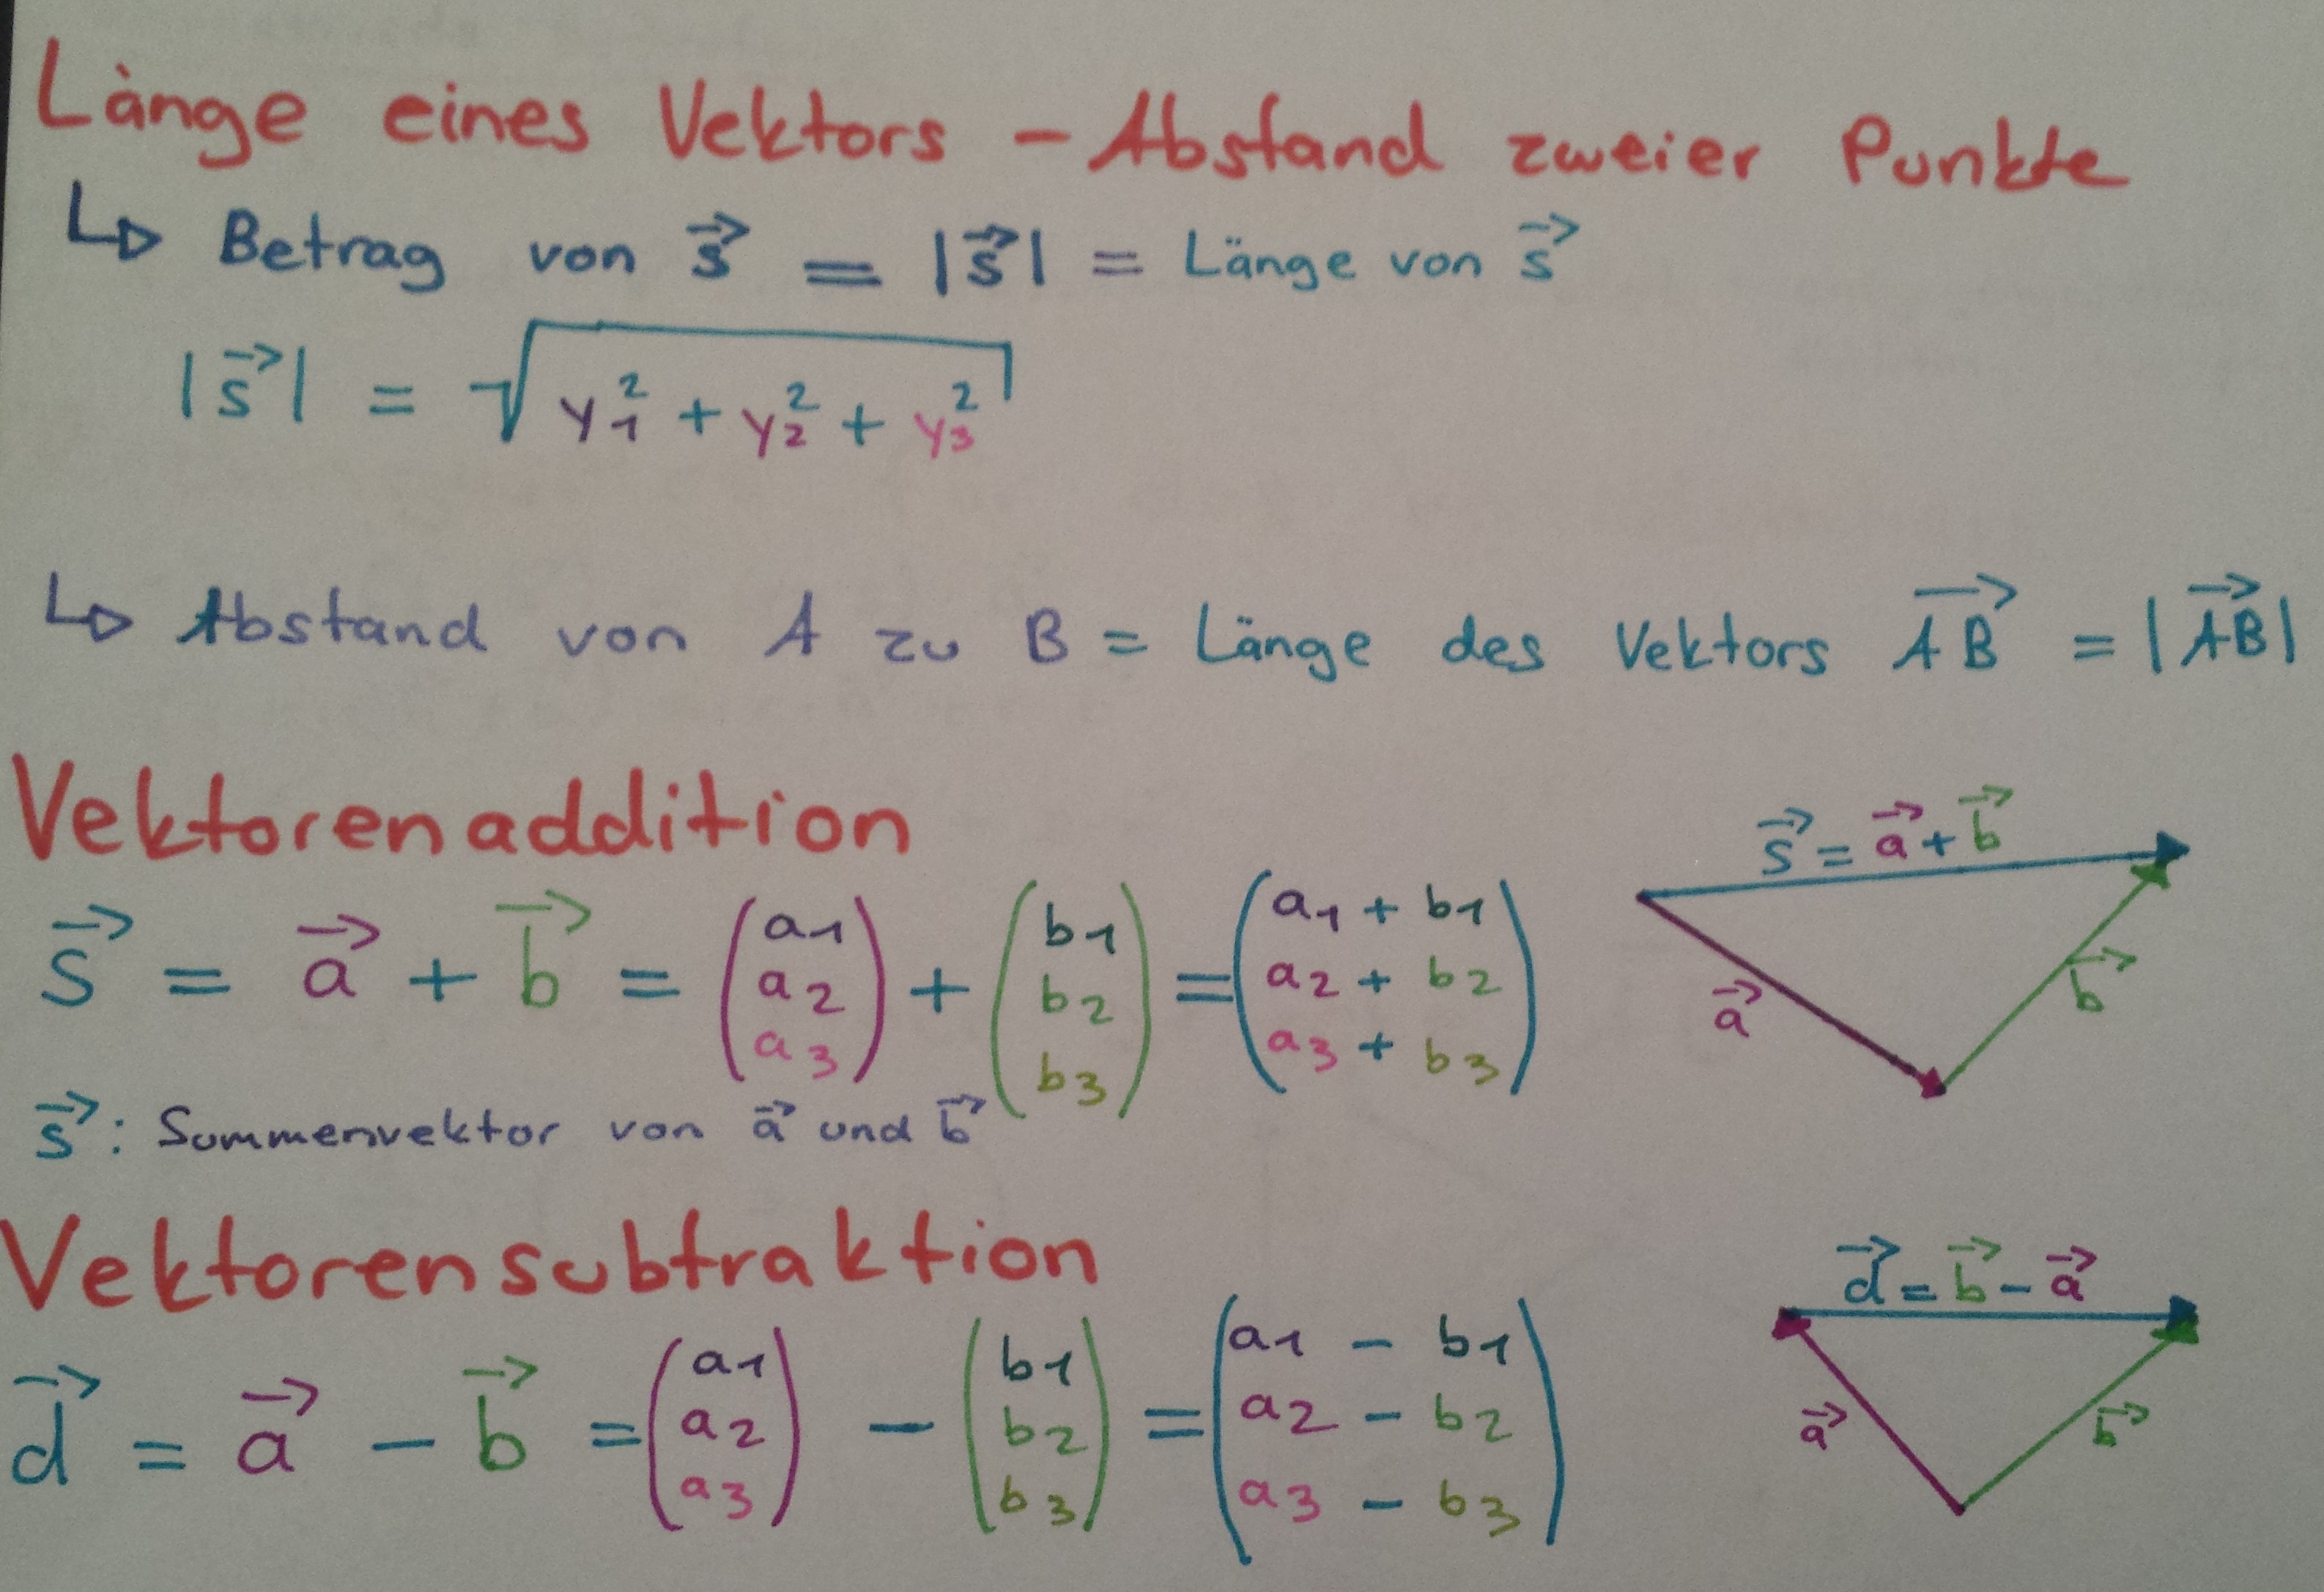 Länge eines Vektors - Abstand zweier Punkte
↳ Betrag von s⃗ = |s⃗| = Länge von s⃗
|s⃗| = √(y₁² + y₂² + y₃²)
↳ Abstand von A zu B = Länge des Vektors AB⃗ = |AB⃗|
Vektorenaddition
s⃗ = a⃗ + b⃗ = (a1 a2 a3) + (b1 b2 b3) = (a1 + b1 a2 + b2 a3 + b3)
s⃗ = a⃗ + b⃗
a⃗
b⃗
s⃗: Summenvektor von a⃗ und b⃗
Vektorensubtraktion
d⃗ = a⃗ - b⃗ = (a1 a2 a3) - (b1 b2 b3) = (a1 - b1 a2 - b2 a3 - b3)
d⃗ = b⃗ - a⃗
a⃗
b⃗